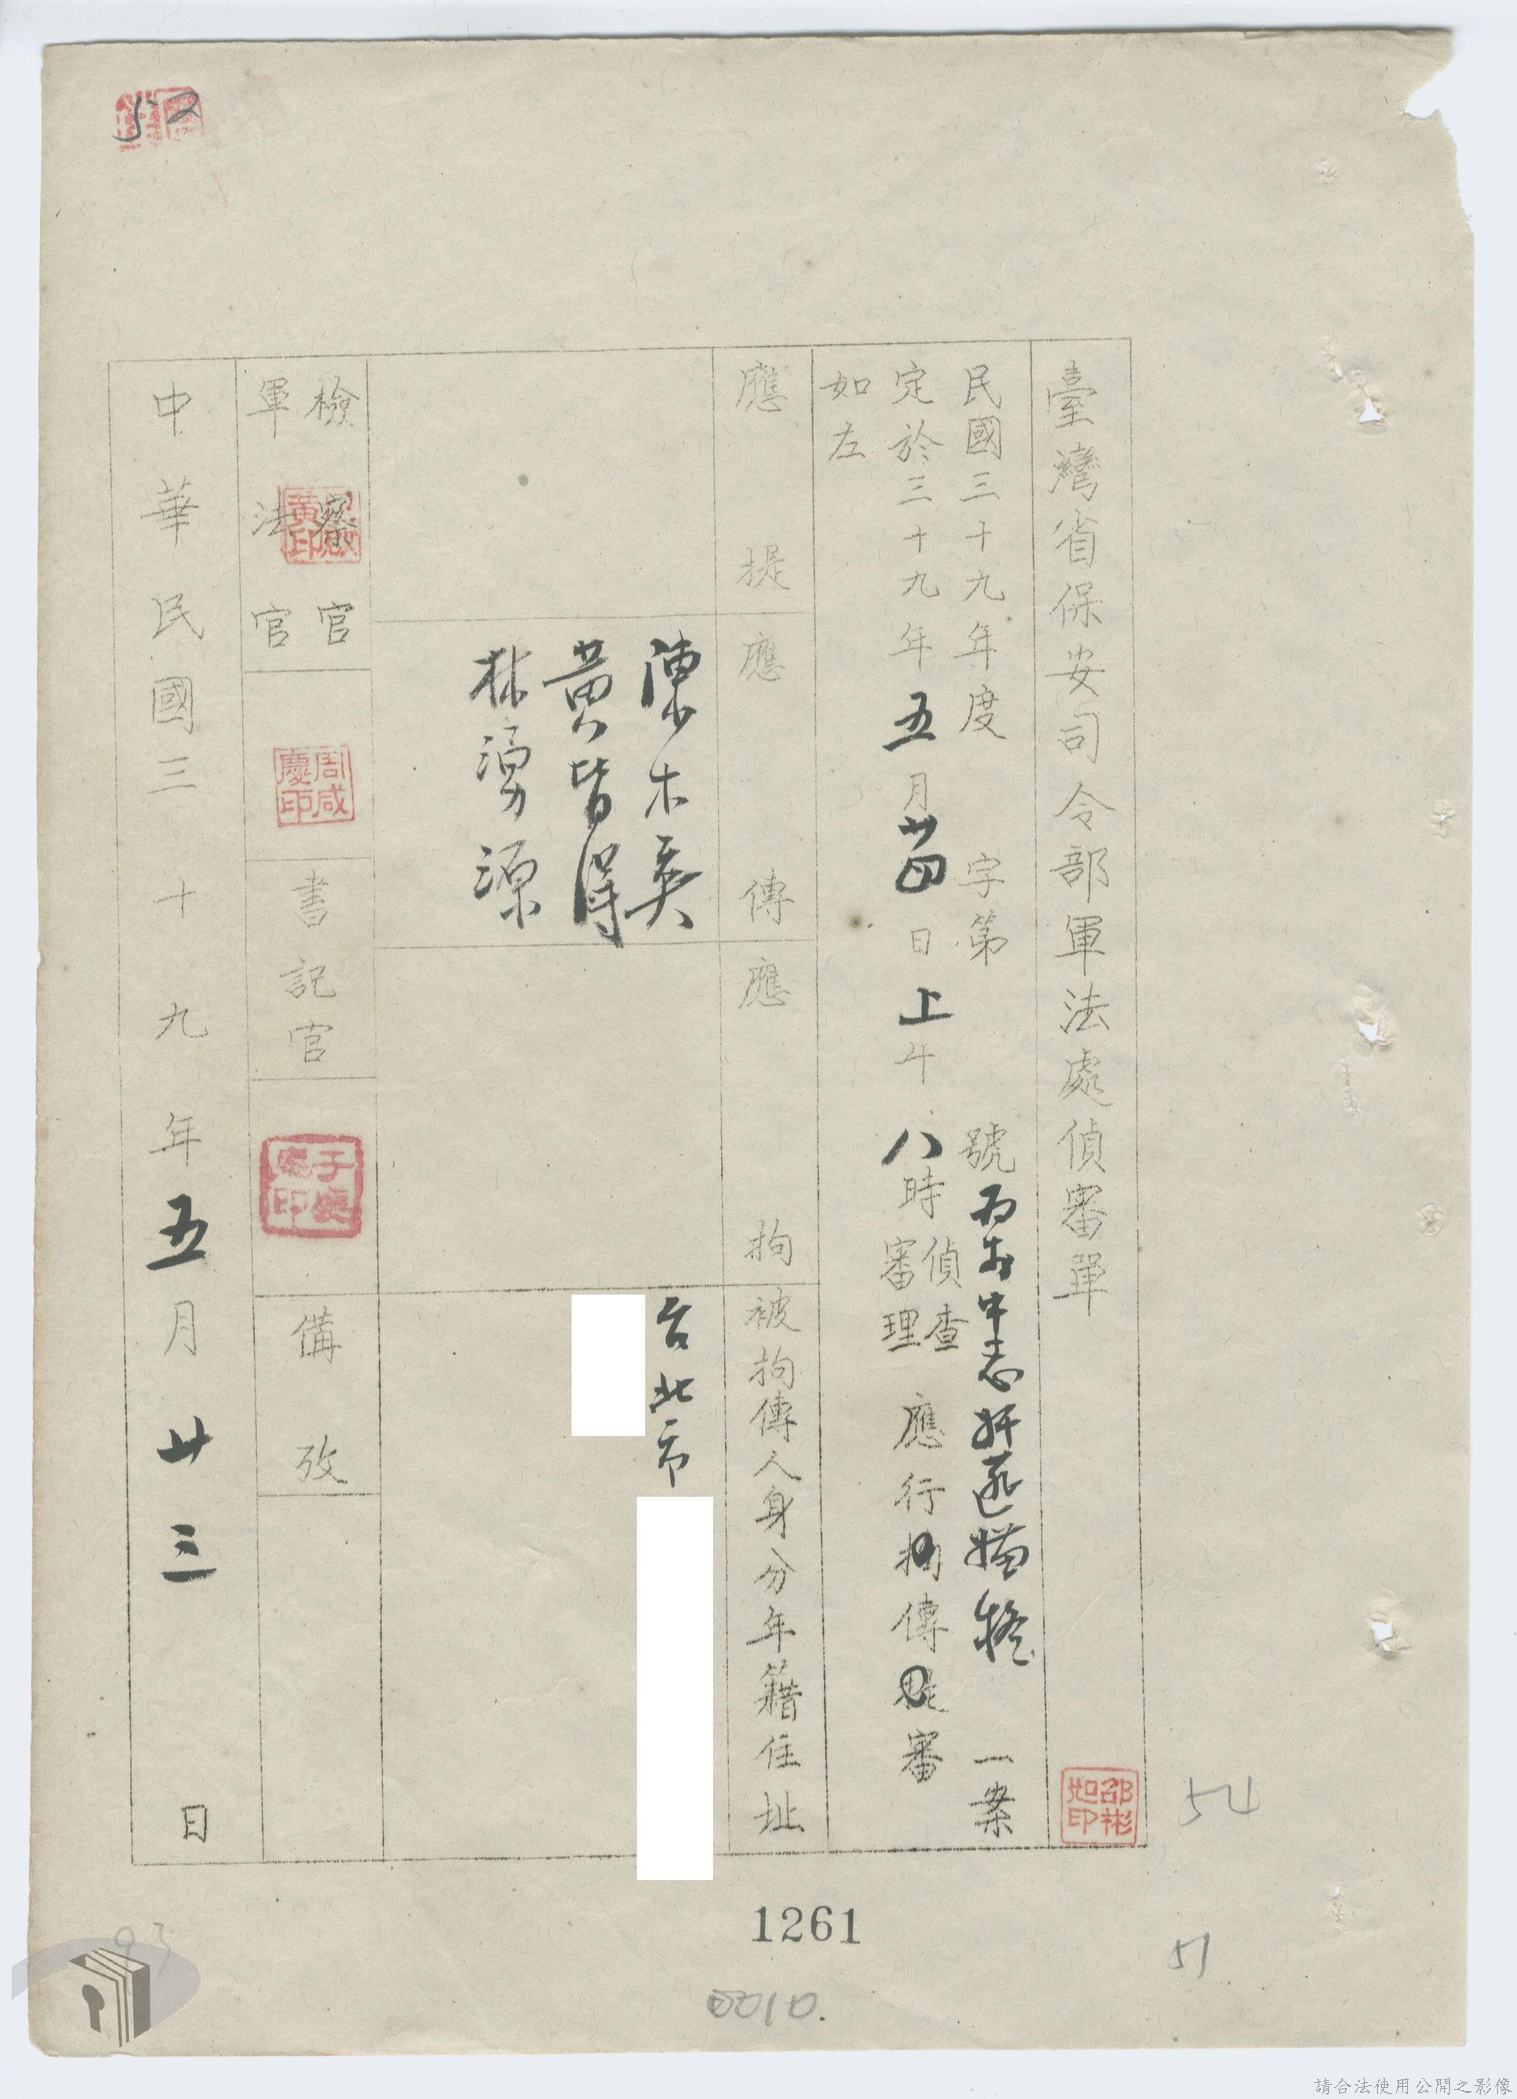 臺灣省保安司令部軍法處偵審單
民國三十九年度　字第　號　一案
定於三十九年五月廿四日上午八時偵查審理應行拘傳提審
如左
應提
應傳
應拘
被拘傳人身分年籍住址
陳木
黃皆得
林湧源
台北市
檢察官
軍法官
書記官
備攷
中華民國三十九年五月廿三日
邵彬如印
周咸慶印
52
54
51
1261
0010.
93
請合法使用公開之影像